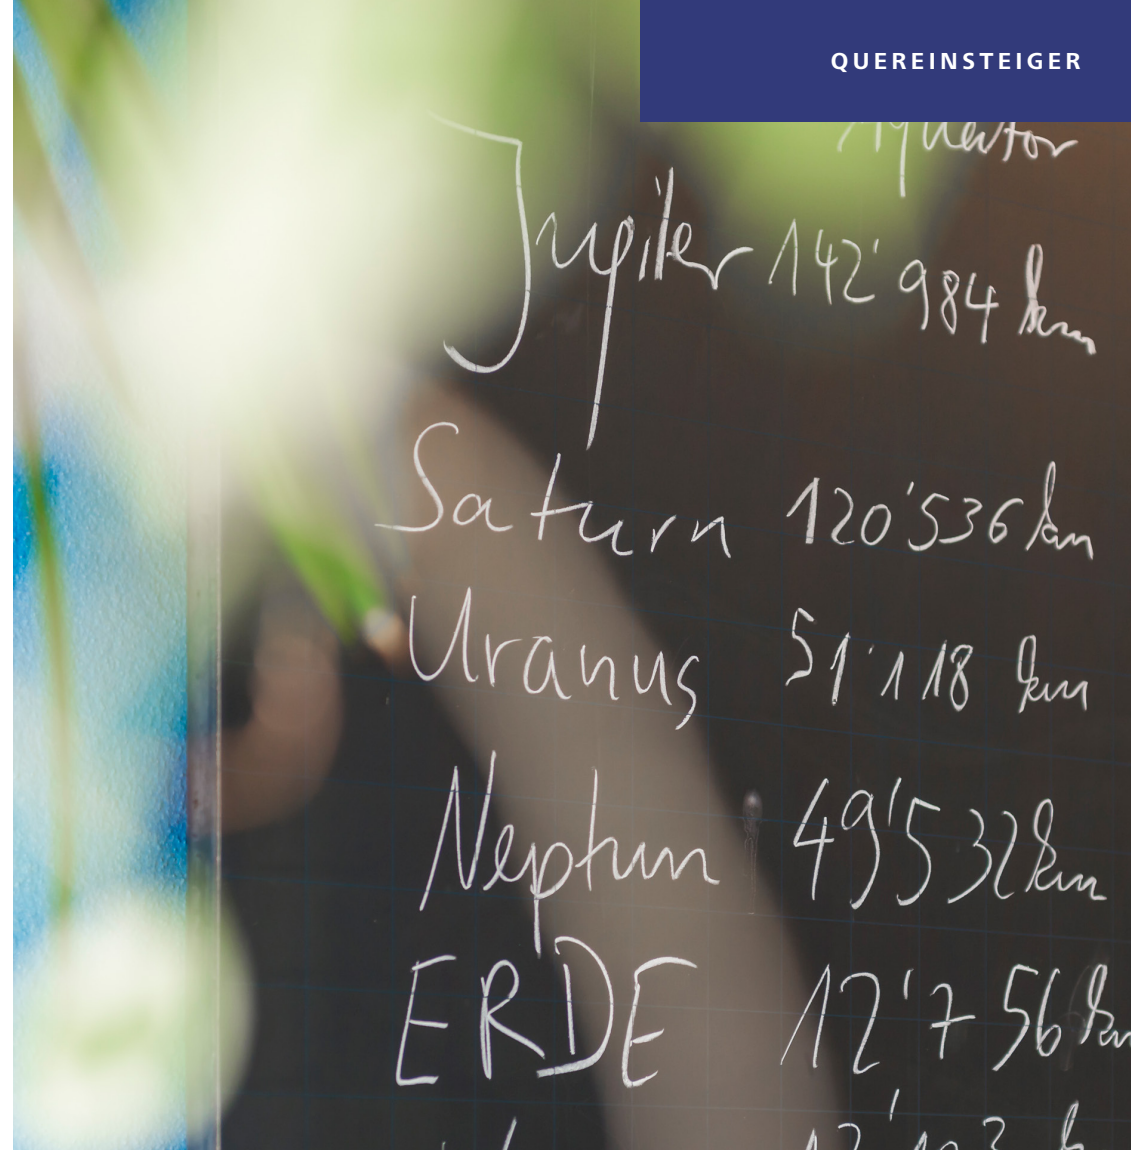 QUEREINSTEIGER
Äquator
Jupiter 142'984 km
Saturn 120'536 km
Uranus 51'118 km
Neptun 49'532 km
ERDE 12'756 km